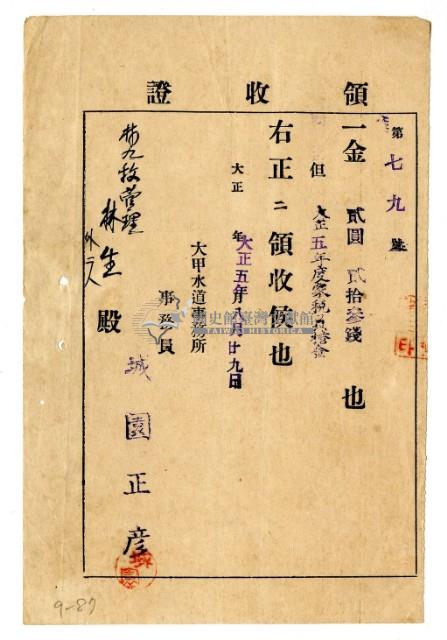 領收證
第七九號
一金 貳圓貳拾參錢 也
但 大正五年度家稅
右正ニ領收候也
大正 年 大正五年 月 八月廿九日
大甲水道事務所
事務員
城園正彥
管理
林生
外一人
殿
國史館臺灣文獻館
TAIWAN HISTORICA
9-87